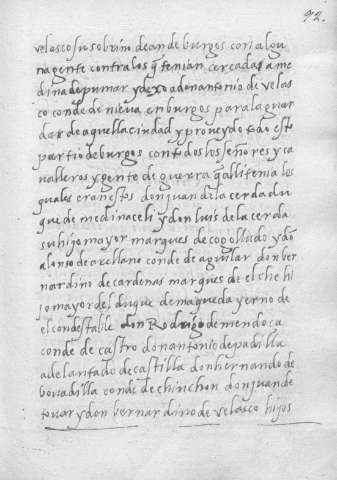 92.
velasco su sobrino dean de burgos con algu
na gente contra los q̃ tenian cercada a me
dina de pumar y dexo a don antonio de velas
co conde de nieva en burgos para la guar
dar de aquella ciudad y proueydo todo esto
partio de burgos con todos los señores y ca
valleros y gente de guerra q̃ alli tenia los
quales eran estos don juan de la cerda du
que de medinaceli y don luis de la cerda
su hijo mayor marques de cogolludo y dõ
alonso de arellano conde de aguilar don ber
nardino de cardenas marques de elche hi
jo mayor del duque de maqueda yerno de
el condestable don Rodrigo de mendoca
conde de castro don antonio de padilla
adelantado de castilla don hernando de
bouadilla conde de chinchon don juan de
touar y don bernardino de velasco hijos